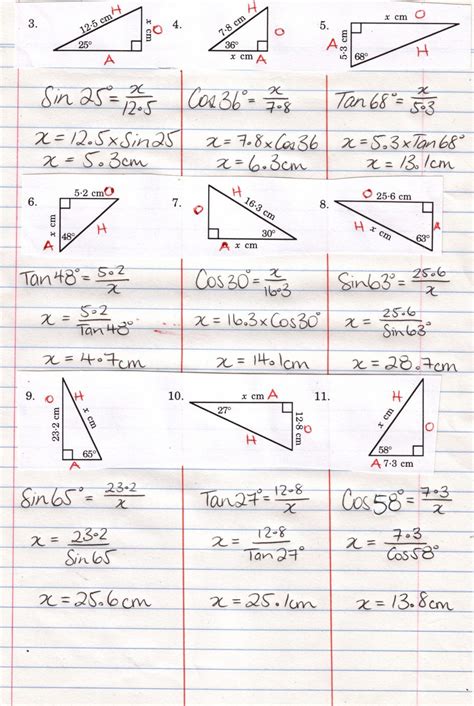 3. 12·5 cm H x cm O 25° A
4. 7·8 cm H O 36° x cm A
5. x cm O 5·3 cm A 68° H
Sin 25° = x/12.5
Cos 36° = x/7.8
Tan 68° = x/5.3
x = 12.5 x Sin 25
x = 7.8 x Cos 36
x = 5.3 x Tan 68°
x = 5.3 cm
x = 6.3 cm
x = 13.1 cm
6. 5·2 cm O x cm A 48° H
7. O H 16·3 cm 30° A x cm
8. O 25·6 cm H x cm 63° A
Tan 48° = 5.2/x
Cos 30° = x/16.3
Sin 63° = 25.6/x
x = 5.2/Tan 48°
x = 16.3 x Cos 30°
x = 25.6/Sin 63°
x = 4.7 cm
x = 14.1 cm
x = 28.7 cm
9. O 23·2 cm H x cm A 65°
10. x cm A 27° H 12·8 cm O
11. H x cm O 58° A 7·3 cm
Sin 65° = 23.2/x
Tan 27° = 12.8/x
Cos 58° = 7.3/x
x = 23.2/Sin 65
x = 12.8/Tan 27°
x = 7.3/Cos 58°
x = 25.6 cm
x = 25.1 cm
x = 13.8 cm